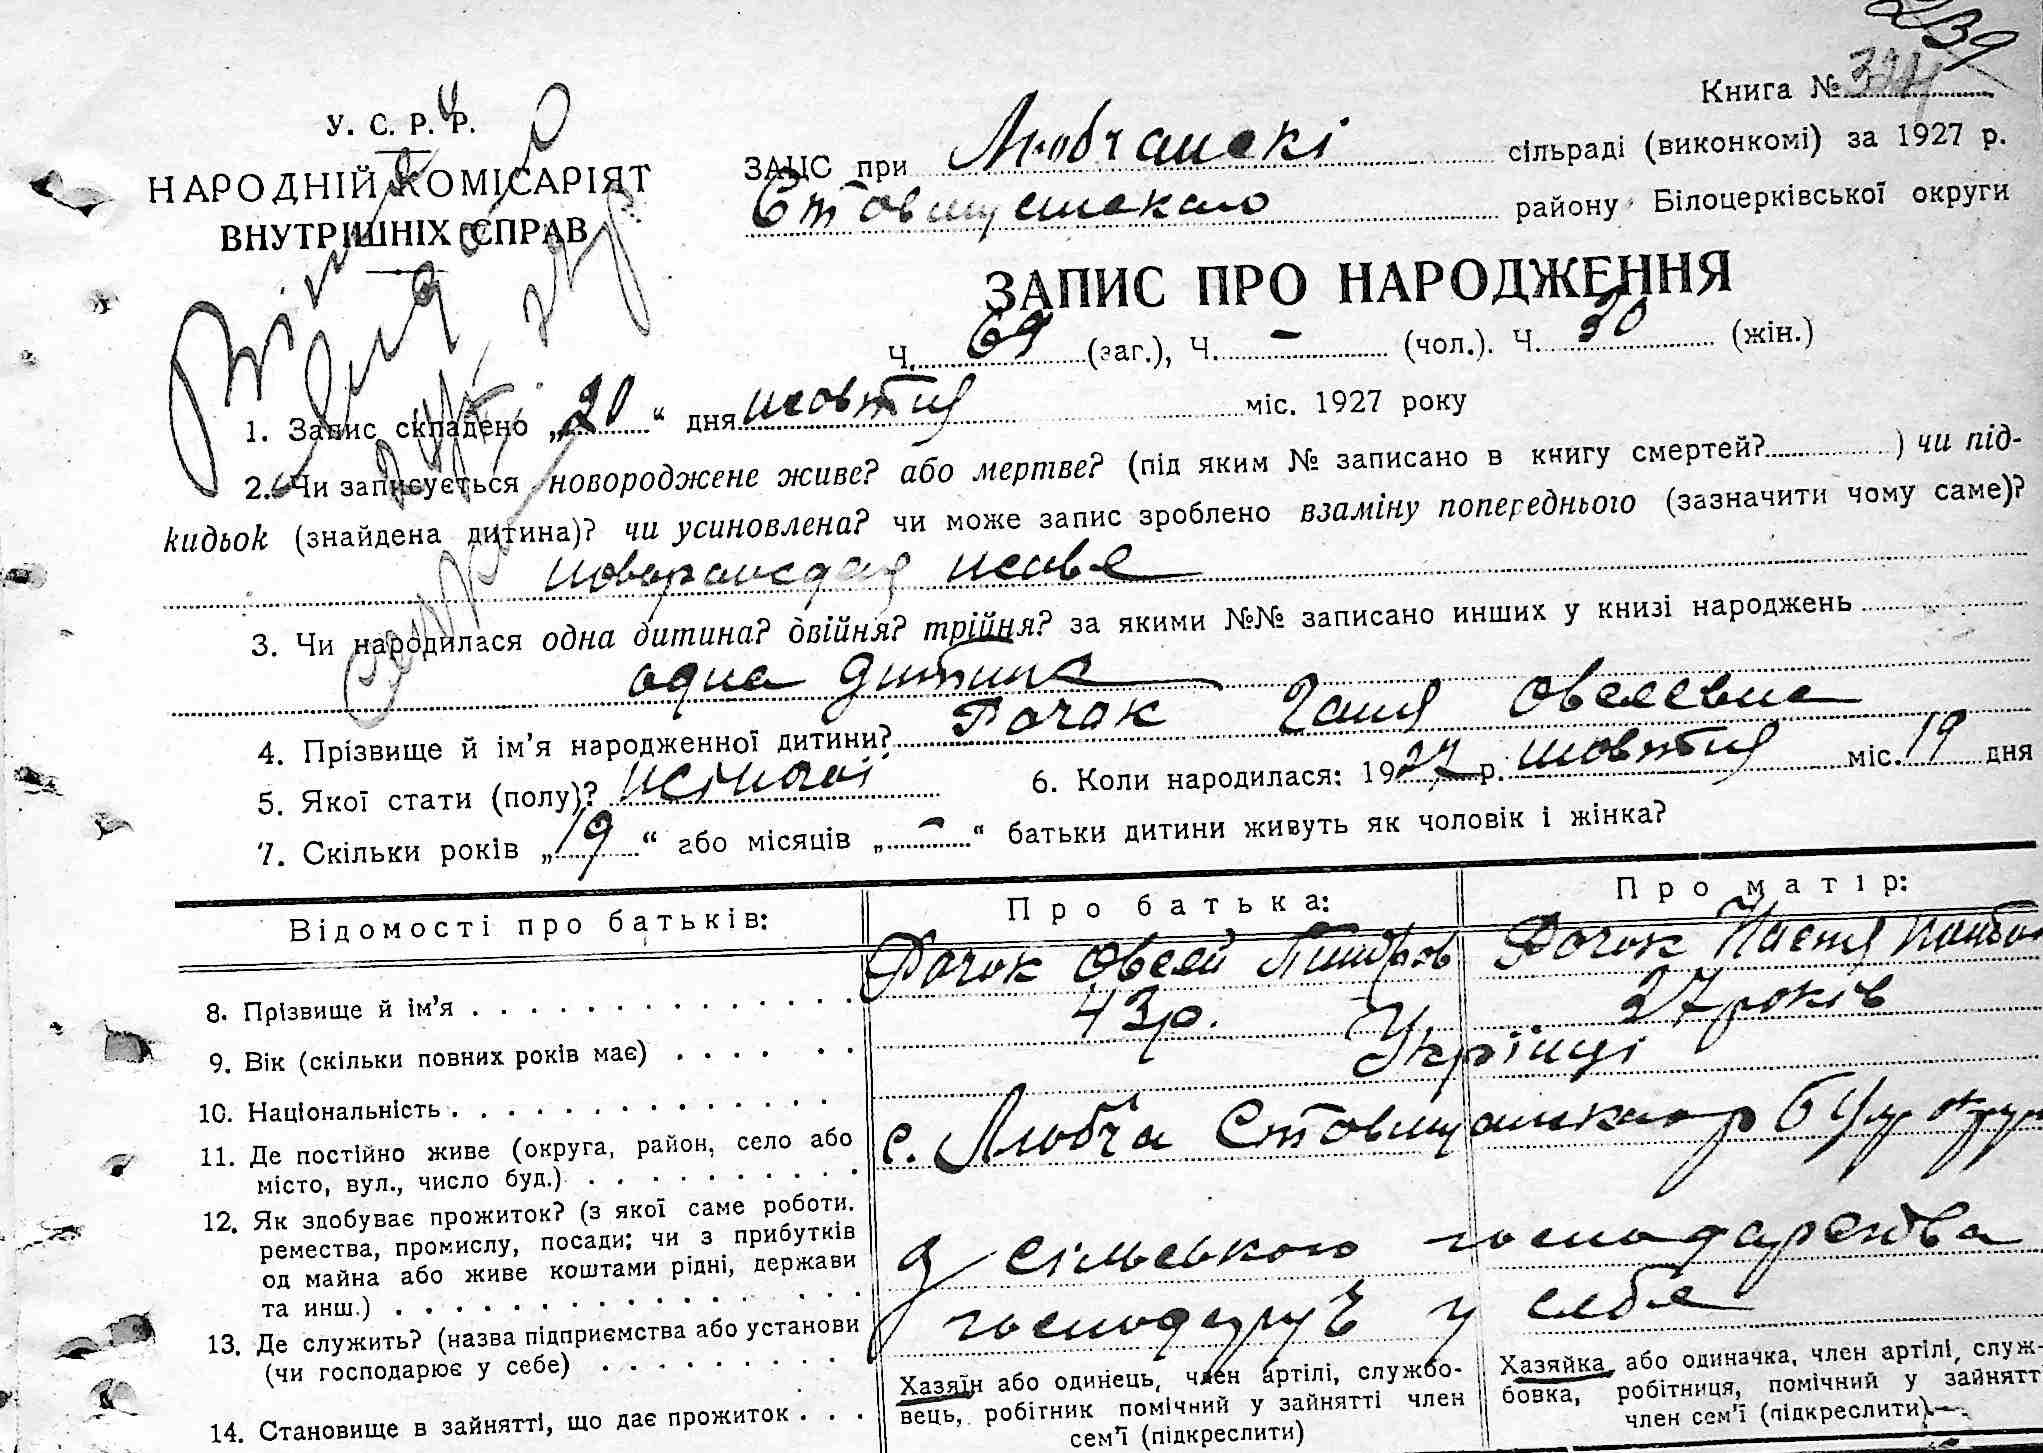 239
Книга № 324
У. С. Р. Р.
НАРОДНІЙ КОМІСАРІЯТ
ВНУТРІШНІХ СПРАВ
ЗАЦС при Любчанскі сільраді (виконкомі) за 1927 р.
Ставищенскаго району Білоцерківської округи
ЗАПИС ПРО НАРОДЖЕННЯ
Ч. 69 (заг.), Ч. – (чол.). Ч. 30 (жін.)
1. Запис складено „20“ дня жовтня міс. 1927 року
2. Чи записується новороджене живе? або мертве? (під яким № записано в книгу смертей? ) чи під-
кидьок (знайдена дитина)? чи усиновлена? чи може запис зроблено взаміну попереднього (зазначити чому саме)?
живе
3. Чи народилася одна дитина? двійня? трійня? за якими №№ записано инших у книзі народжень
одна дитина
4. Прізвище й ім'я народженної дитини? Рачок Ганя Овсеєвна
5. Якої стати (полу)? жіночої 6. Коли народилася: 1927 р. жовтня міс. 19 дня
7. Скільки років „19“ або місяців „–“ батьки дитини живуть як чоловік і жінка?
Відомості про батьків: Про батька: Про матір:
8. Прізвище й ім'я Рачок Овсей Рачок Настя
9. Вік (скільки повних років має) 43 р. 37 років
10. Національність Укрїнці
11. Де постійно живе (округа, район, село або с. Любча
місто, вул., число буд.)
12. Як здобуває прожиток? (з якої саме роботи.
ремества, промислу, посади; чи з прибутків
од майна або живе коштами рідні, держави
та инш.) з сільського господарства
13. Де служить? (назва підприємства або установи
(чи господарює у себе) у себе
14. Становище в зайнятті, що дає прожиток
Хазяїн або одинець, член артілі, службо-
вець, робітник помічний у зайнятті член
сем'ї (підкреслити)
Хазяйка або одиначка, член артілі, служ-
бовка, робітниця, помічний у зайнятт
член сем'ї (підкреслити)